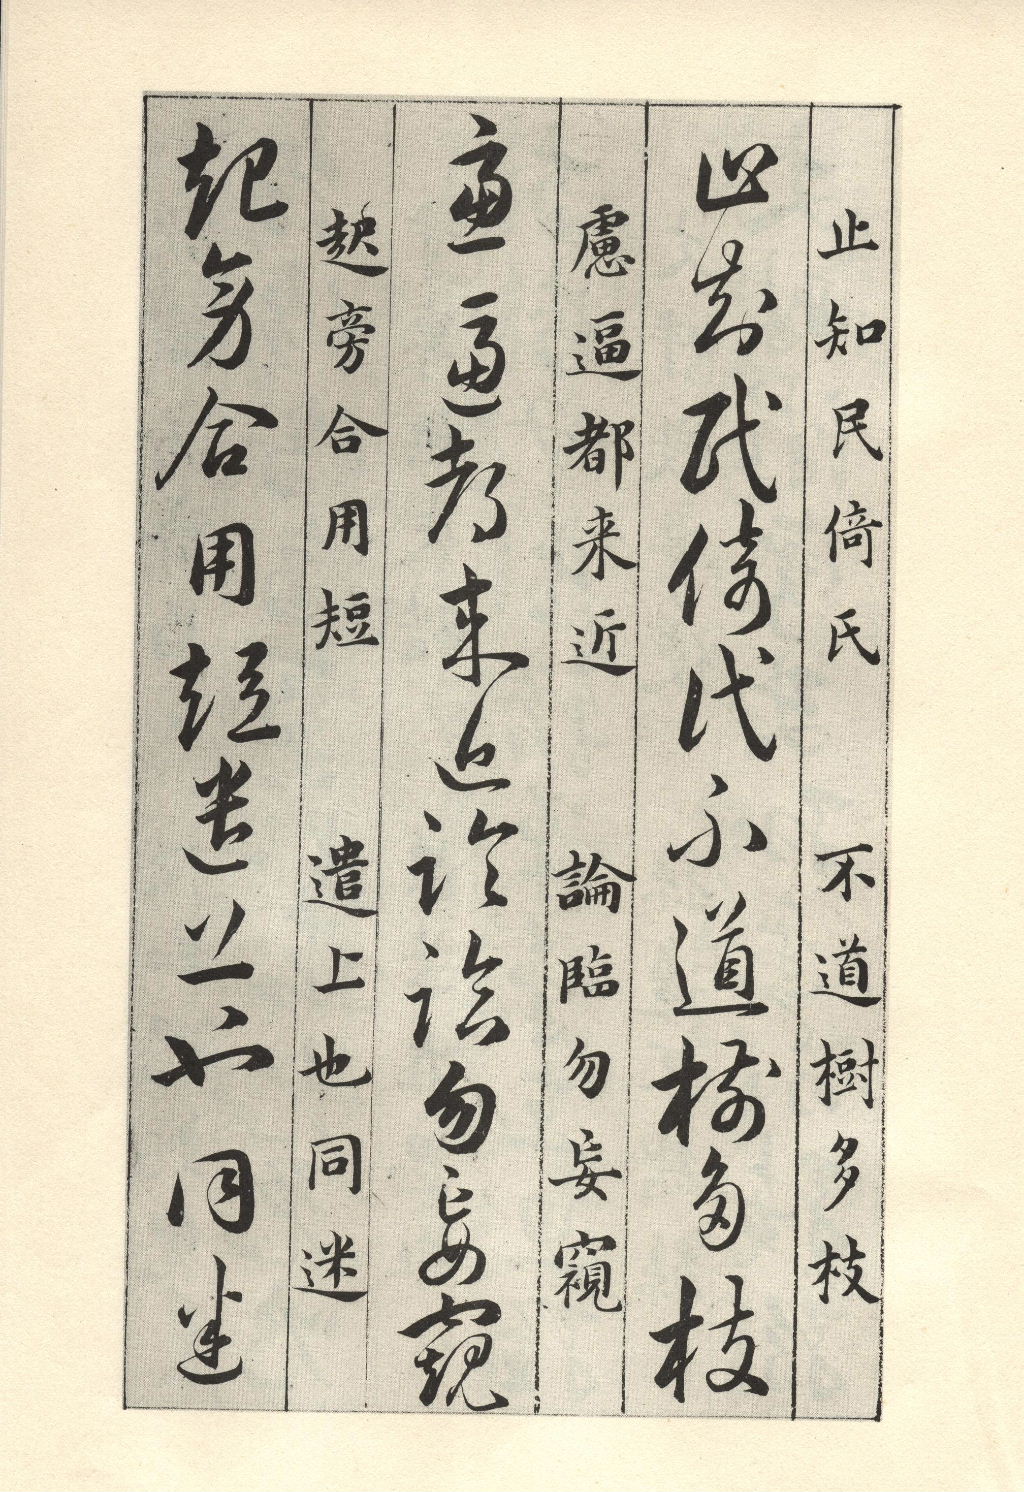 止知民倚氏 不道樹多枝
止知民倚氏不道樹多枝
慮逼都来近 論臨勿妄窺
慮逼都来近論臨勿妄窺
旁合用短 遣上也同迷
旁合用短遣上也同迷